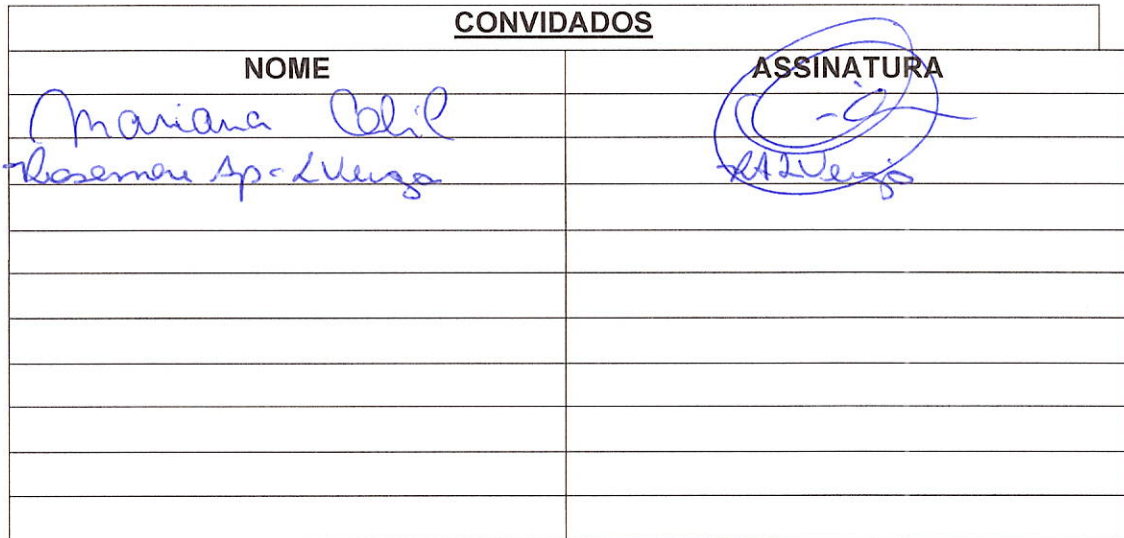 CONVIDADOS
NOME ASSINATURA
Mariana
Rosemere Ap. L Verga RALVerga